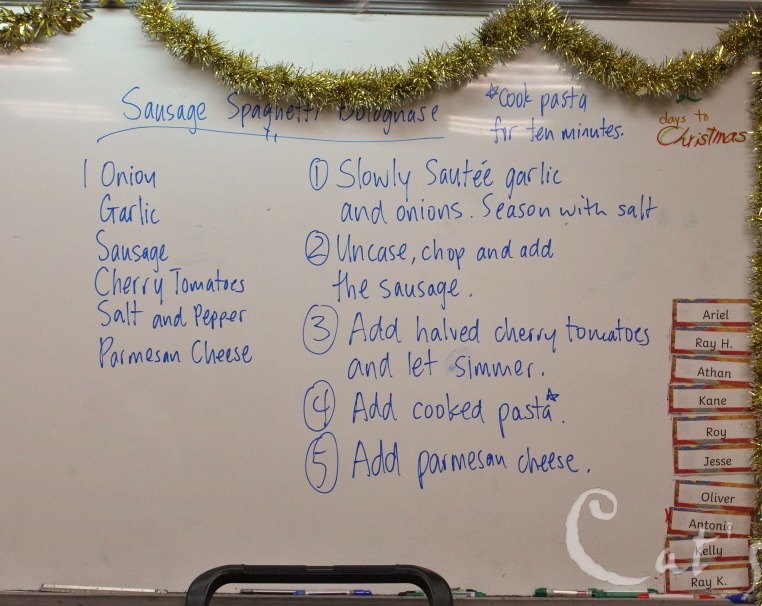 Sausage Spaghetti Bolognase
*Cook pasta
for ten minutes.
days to
Christmas
1 Onion
Garlic
Sausage
Cherry Tomatoes
Salt and Pepper
Parmesan Cheese
① Slowly Sauteé garlic
and onions. Season with salt
② Uncase, chop and add
the sausage.
③ Add halved cherry tomatoes
and let simmer.
④ Add cooked pasta*.
⑤ Add parmesan cheese.
Ariel
Ray H.
Athan
Kane
Roy
Jesse
Oliver
Antonio
Kelly
Ray K.
Cat's